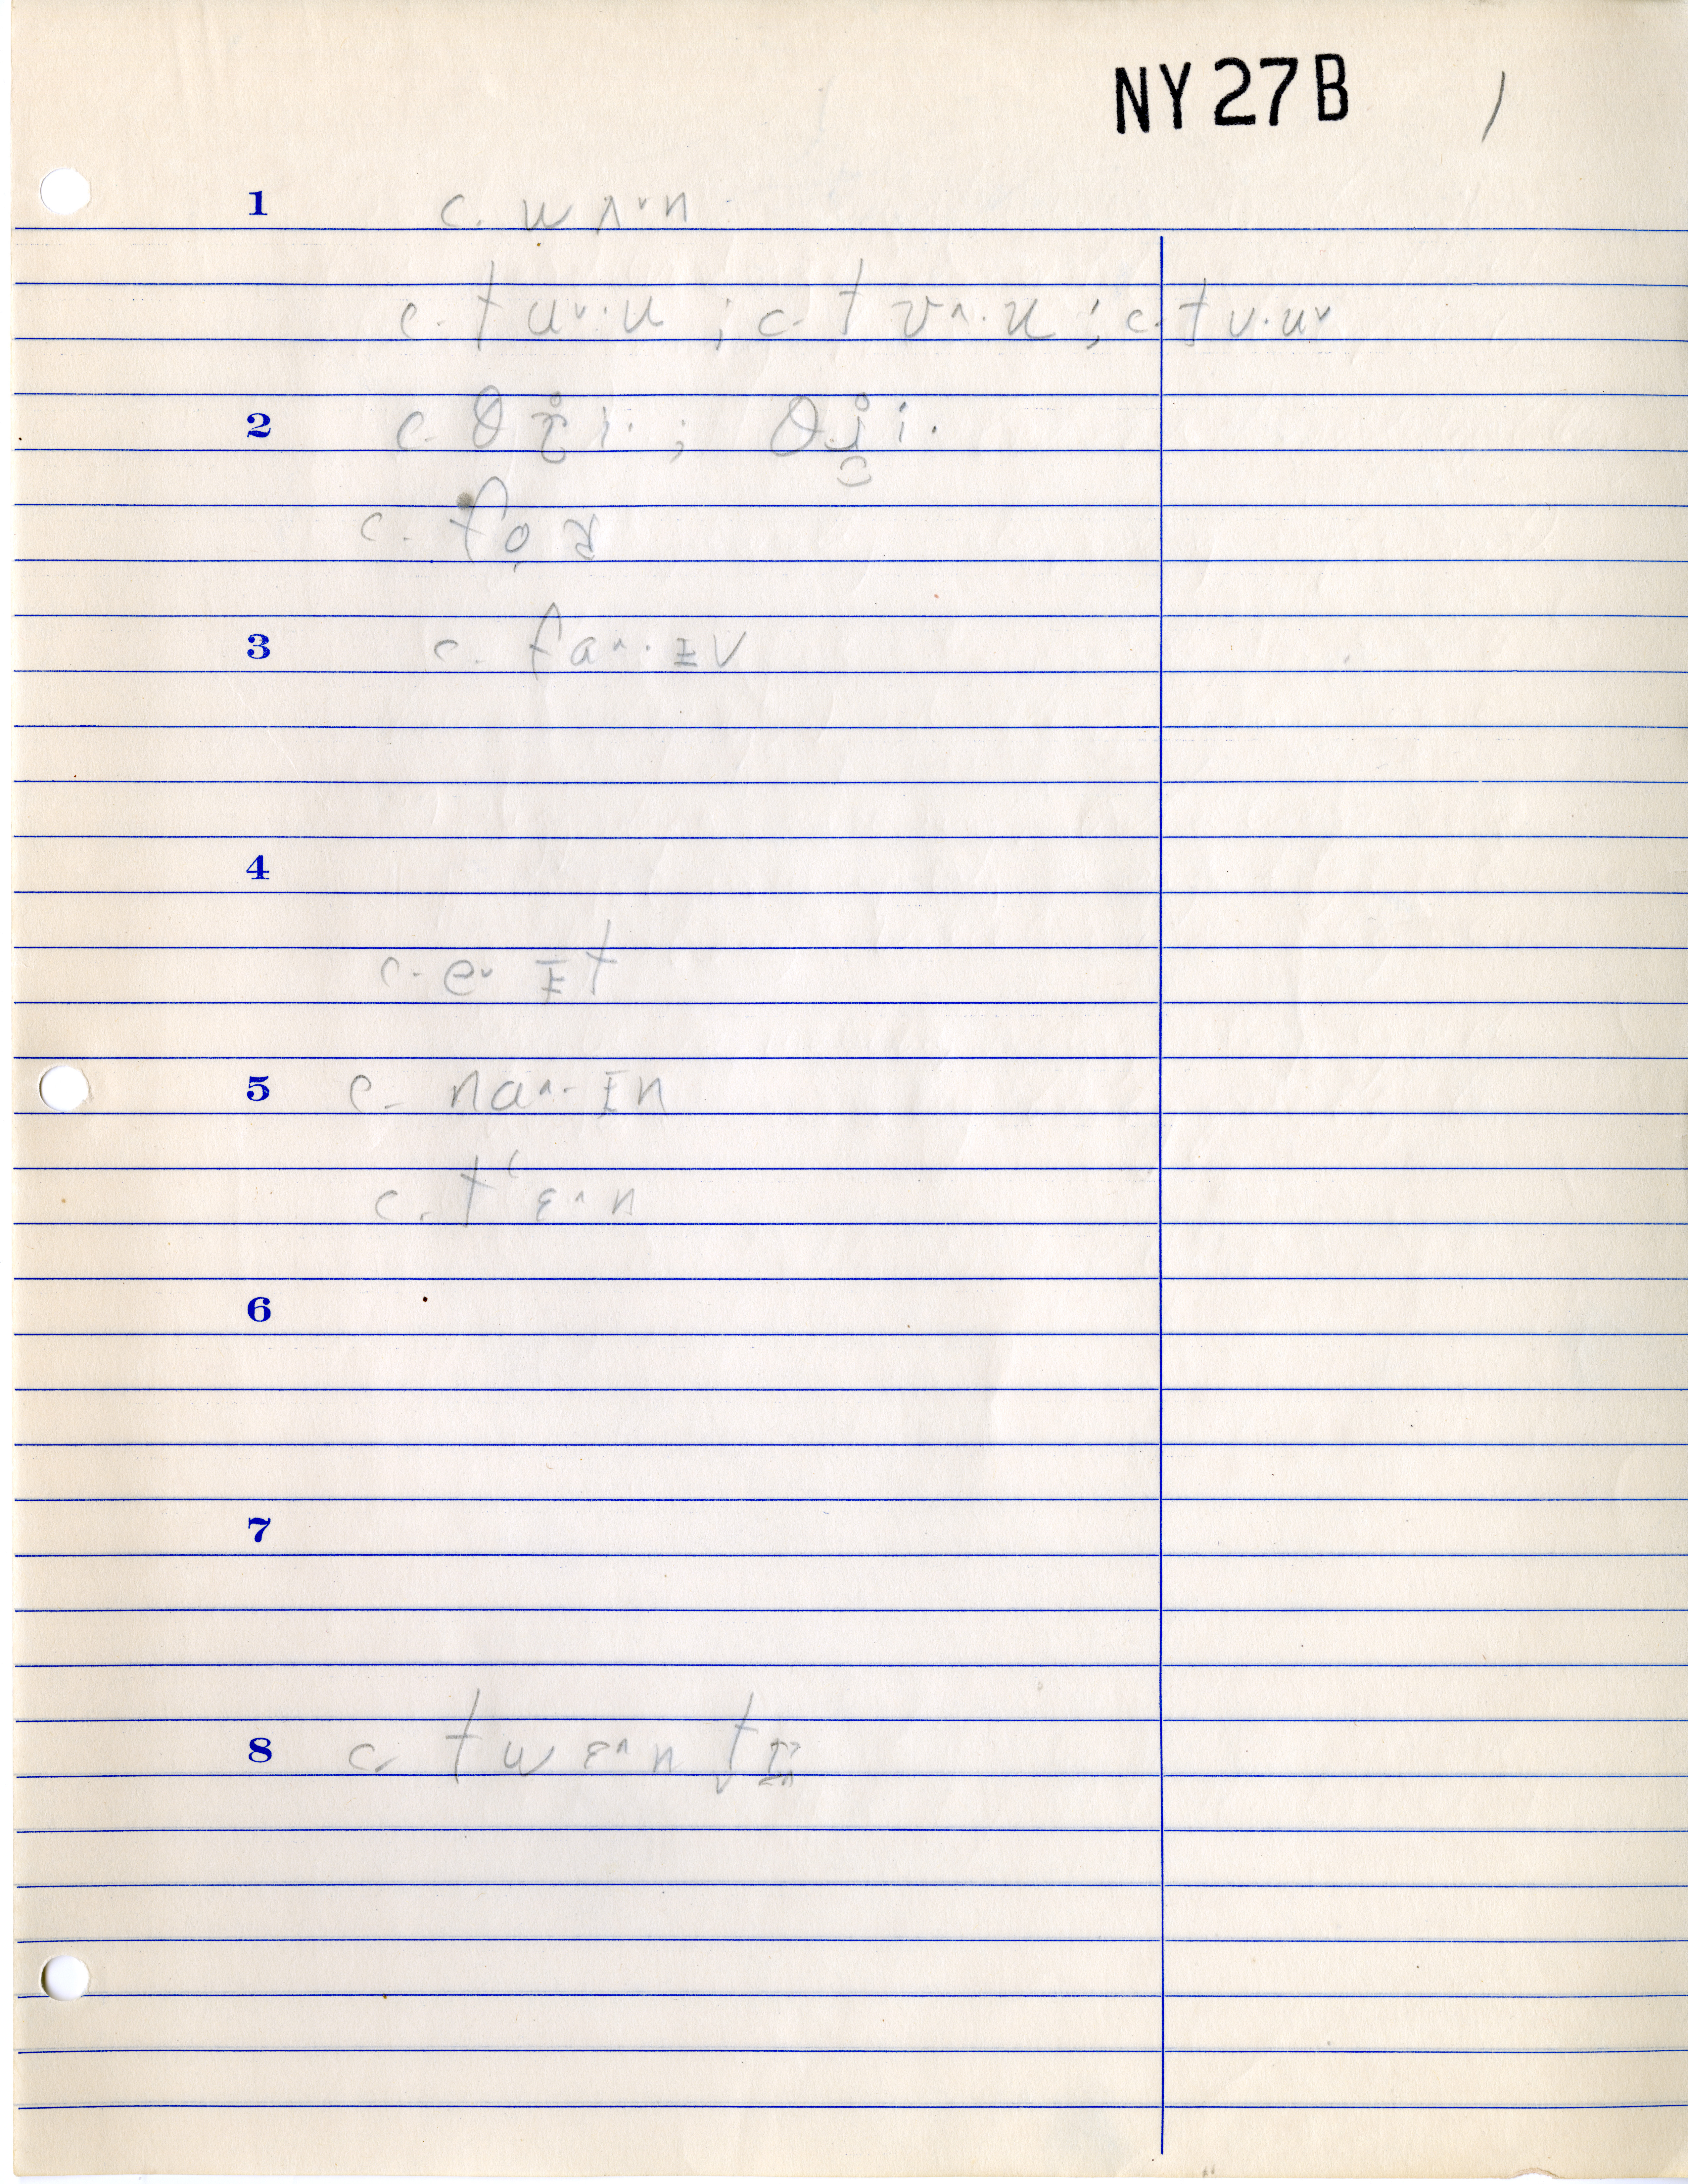 NY 27 B /
1 c. w ʌ˅ n
c. t u˅· u ; c. t ʊ˄· u ; c. t ʊ· u˅
2 c. θ i· ; θ i·
c. f o
3 c. f a˄· ɪ v
4
c. e˅ ɪ t
5 c. n a˄· ɪ n
c. t ʻ ɛ˄ n
6
7
8 c. t w ɛ˄ n t ɪ